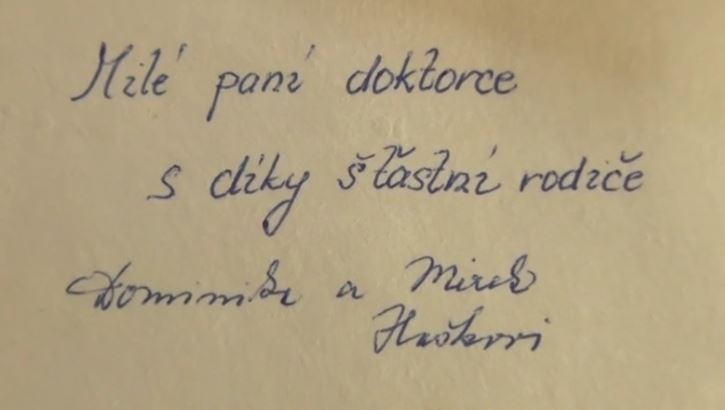 Milé paní doktorce
s díky šťastní rodiče
Dominika a Mirek
Haškovi